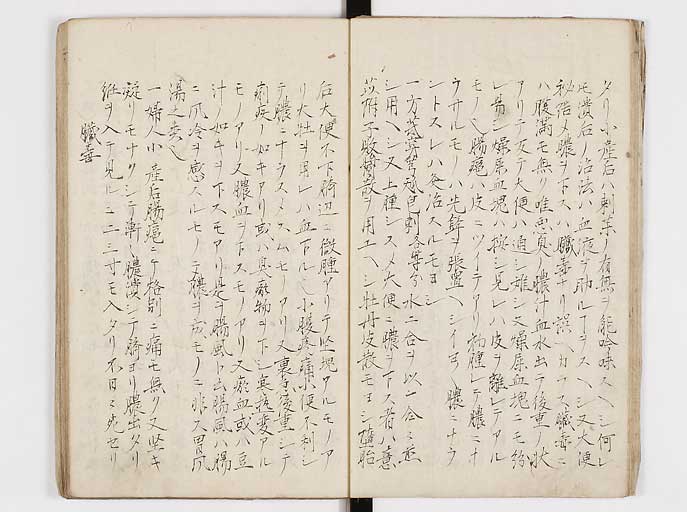 タリ小産后ハ刺茱ノ有無ヲ能吟味スヘシ何レ
モ潰后ノ治法ハ血液ヲ助ルヲヨスヘシ又大便
秘結メ膿ヲ下スハ臓毒ナリ誤ヘカラス臓毒ニ
ハ腹満モ無ク唯悪臭ノ膿汁血水出テ後重ノ状
アリテ大便ハ通シ難シ又燥屎血塊ニモ紛
レ易シ燥屎血塊ハ按シ見レハ皮ヲ離レテアル
モノ也腸癰ハ皮ニツイテアリ初腫レテ膿ニナ
ウサルモノハ先
シトスレハ灸治スルモヨシ
一方 等分水二合ヲ以一合ニ煎
シ用ヘシ又上腫シスメ大便ニ膿ヲ下ス者ハ薏
苡附子敗醤散ヲ用ユヘシ牡丹皮散モヨシ堕胎
后大便不下臍辺ニ微腫アリテ堅塊アルモノア
リ大牡ヲ用レハ血下ル也小腹疼痛小便不利シ
テ膿ニナラスメスムモノアリ又裏急後重シテ
痢疾ノ如キアリ或ハ臭穢物ヲ下シ寒熱変アル
モノアリ又膿血ヲ下スモノアリ又瘀血或小豆
汁ノ如キヲ下スモアリ是ヲ腸風ト云腸風ハ腸
ニ風冷ヲ感スルモノニテ膿ヲ成モノニ非ス胃風
湯之類也
一婦人小産后腸癰ニテ格別ニ痛モ無ク又堅キ
凝リモナクシテ漸々膿潰シテ臍ヨリ膿出タリ
紙ヲ入テ見ルニ二三寸モ入タリ不日ニ死セリ
臓毒